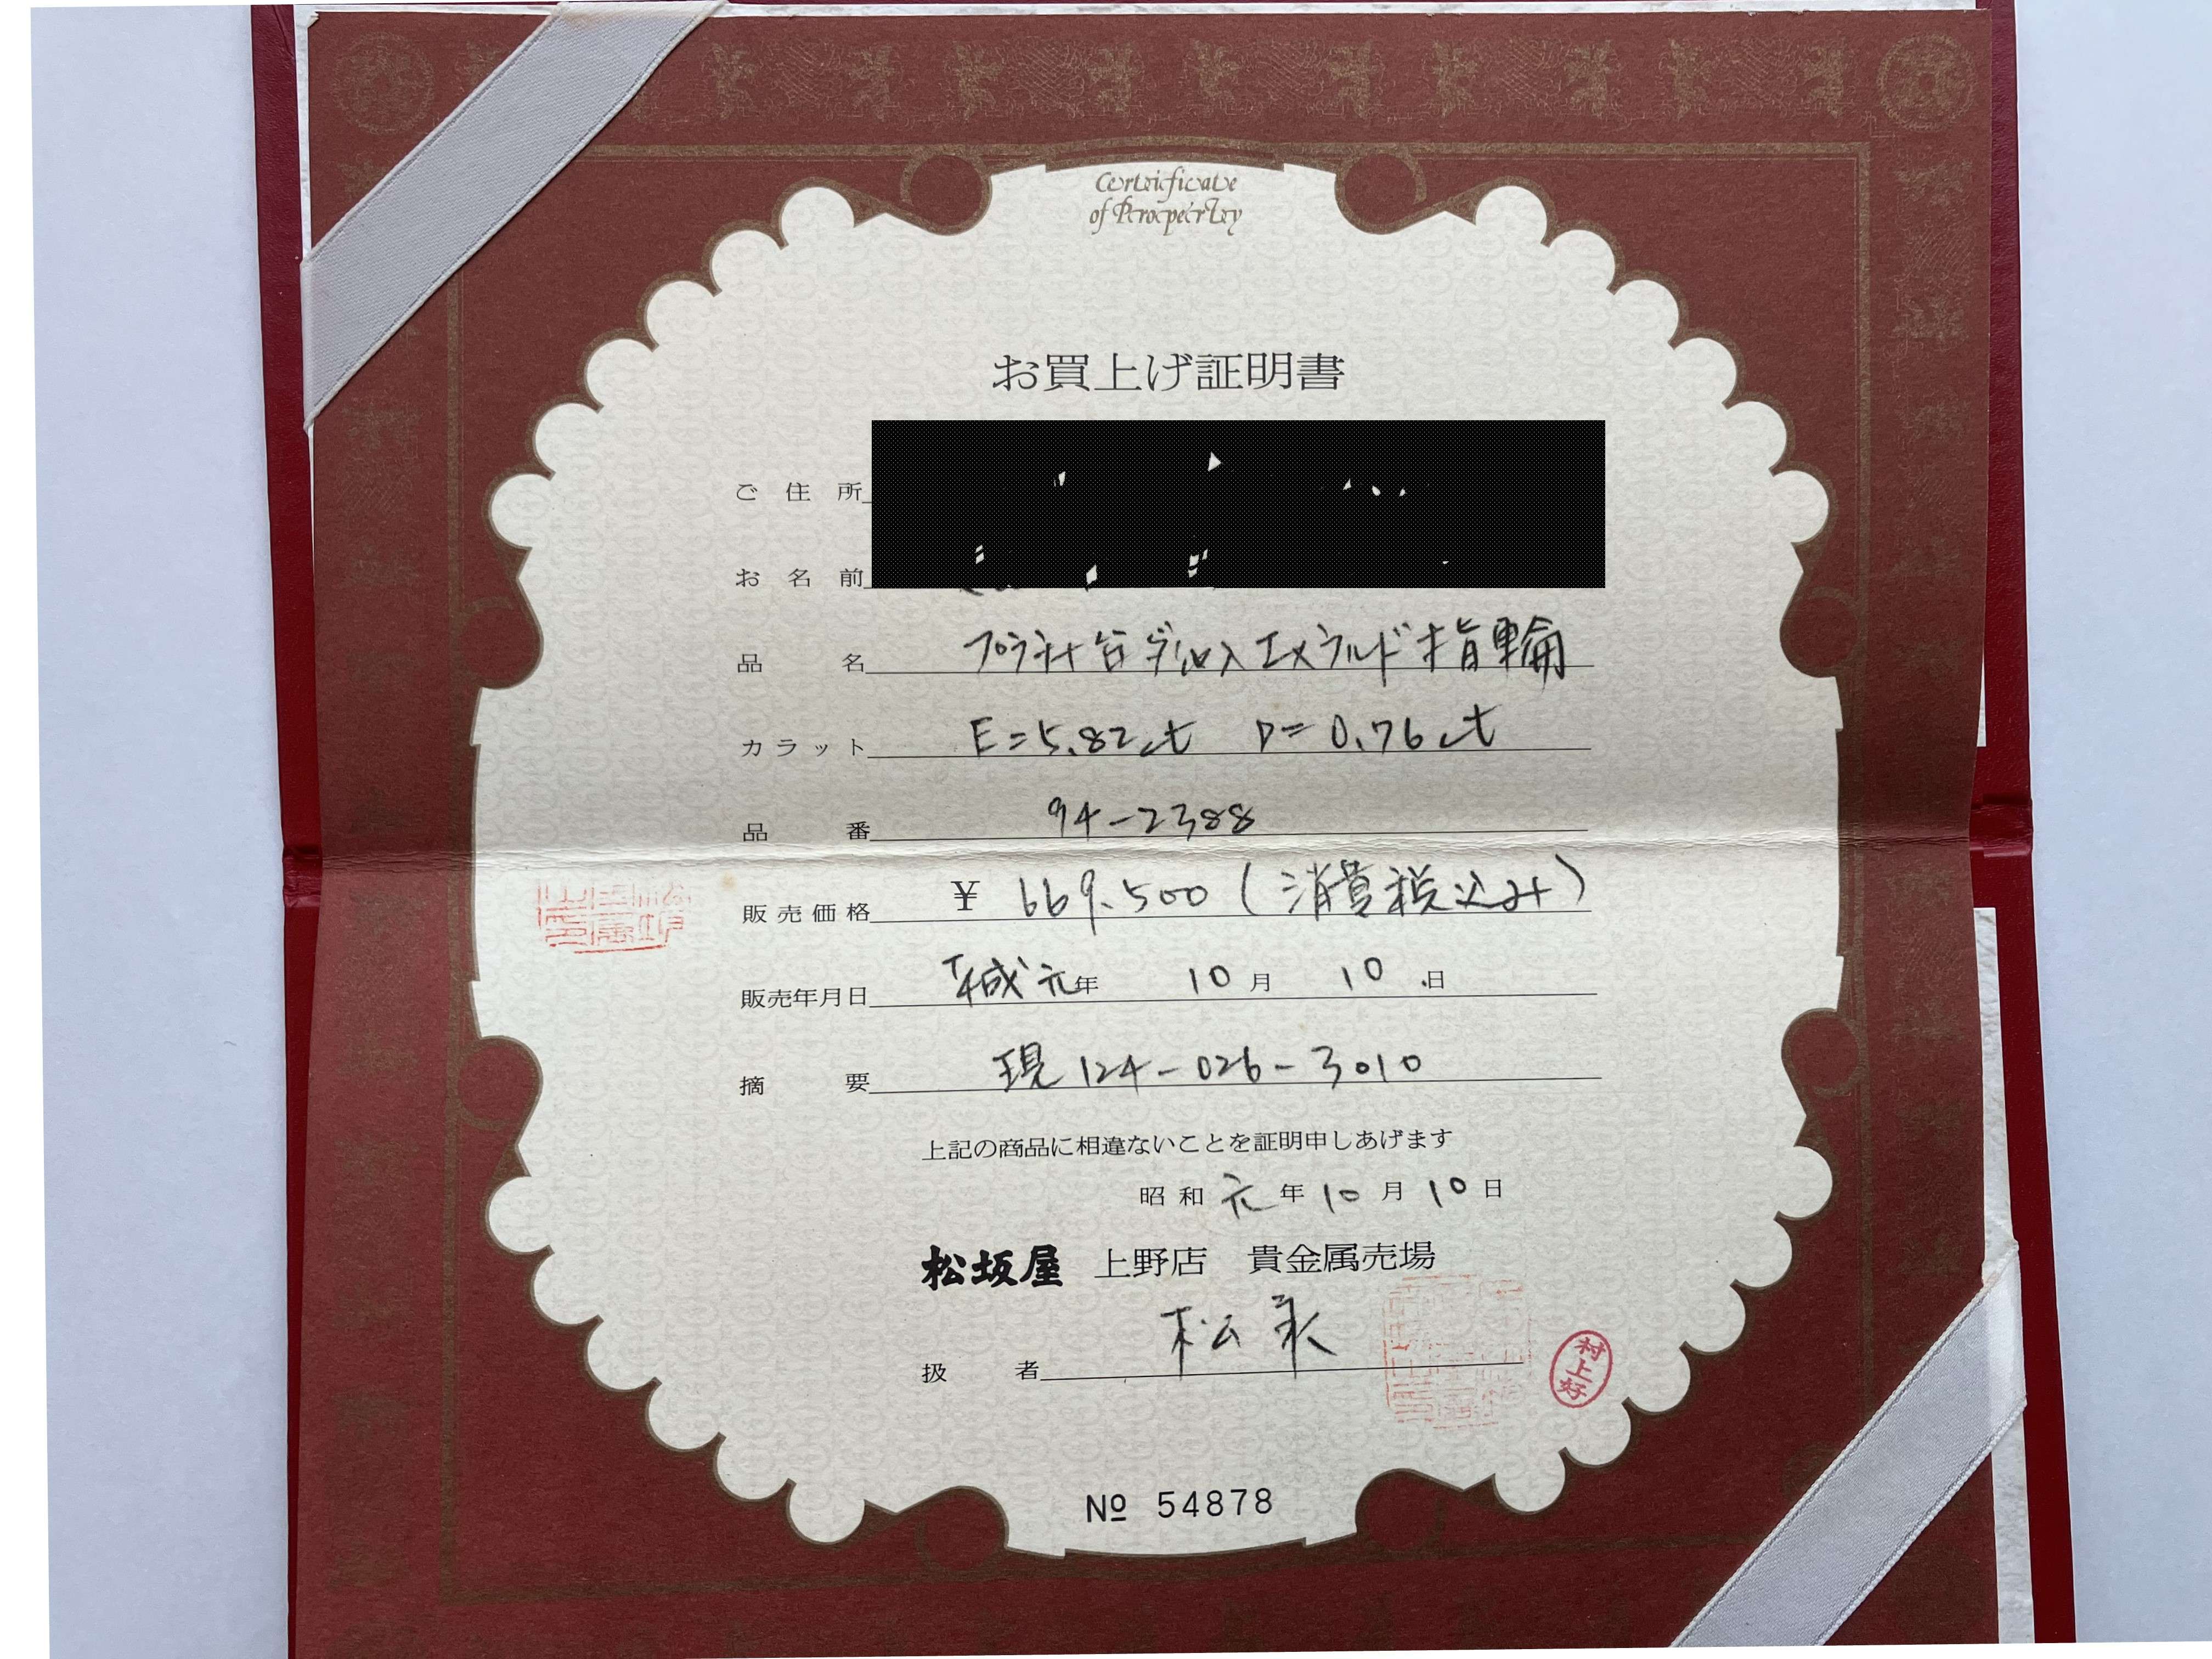 Certificate
of Property
お買上げ証明書
ご住所
お名前
品名 プラチナ台ダイヤ入エメラルド指輪
カラット E=5.82ct D=0.76ct
品番 94-2388
販売価格 ¥ 669.500(消費税込み)
販売年月日 平成元年 10月 10日
摘要 現124-026-3010
上記の商品に相違ないことを証明申しあげます
昭和元年10月10日
松坂屋 上野店 貴金属売場
扱者 松永
村上好
№ 54878